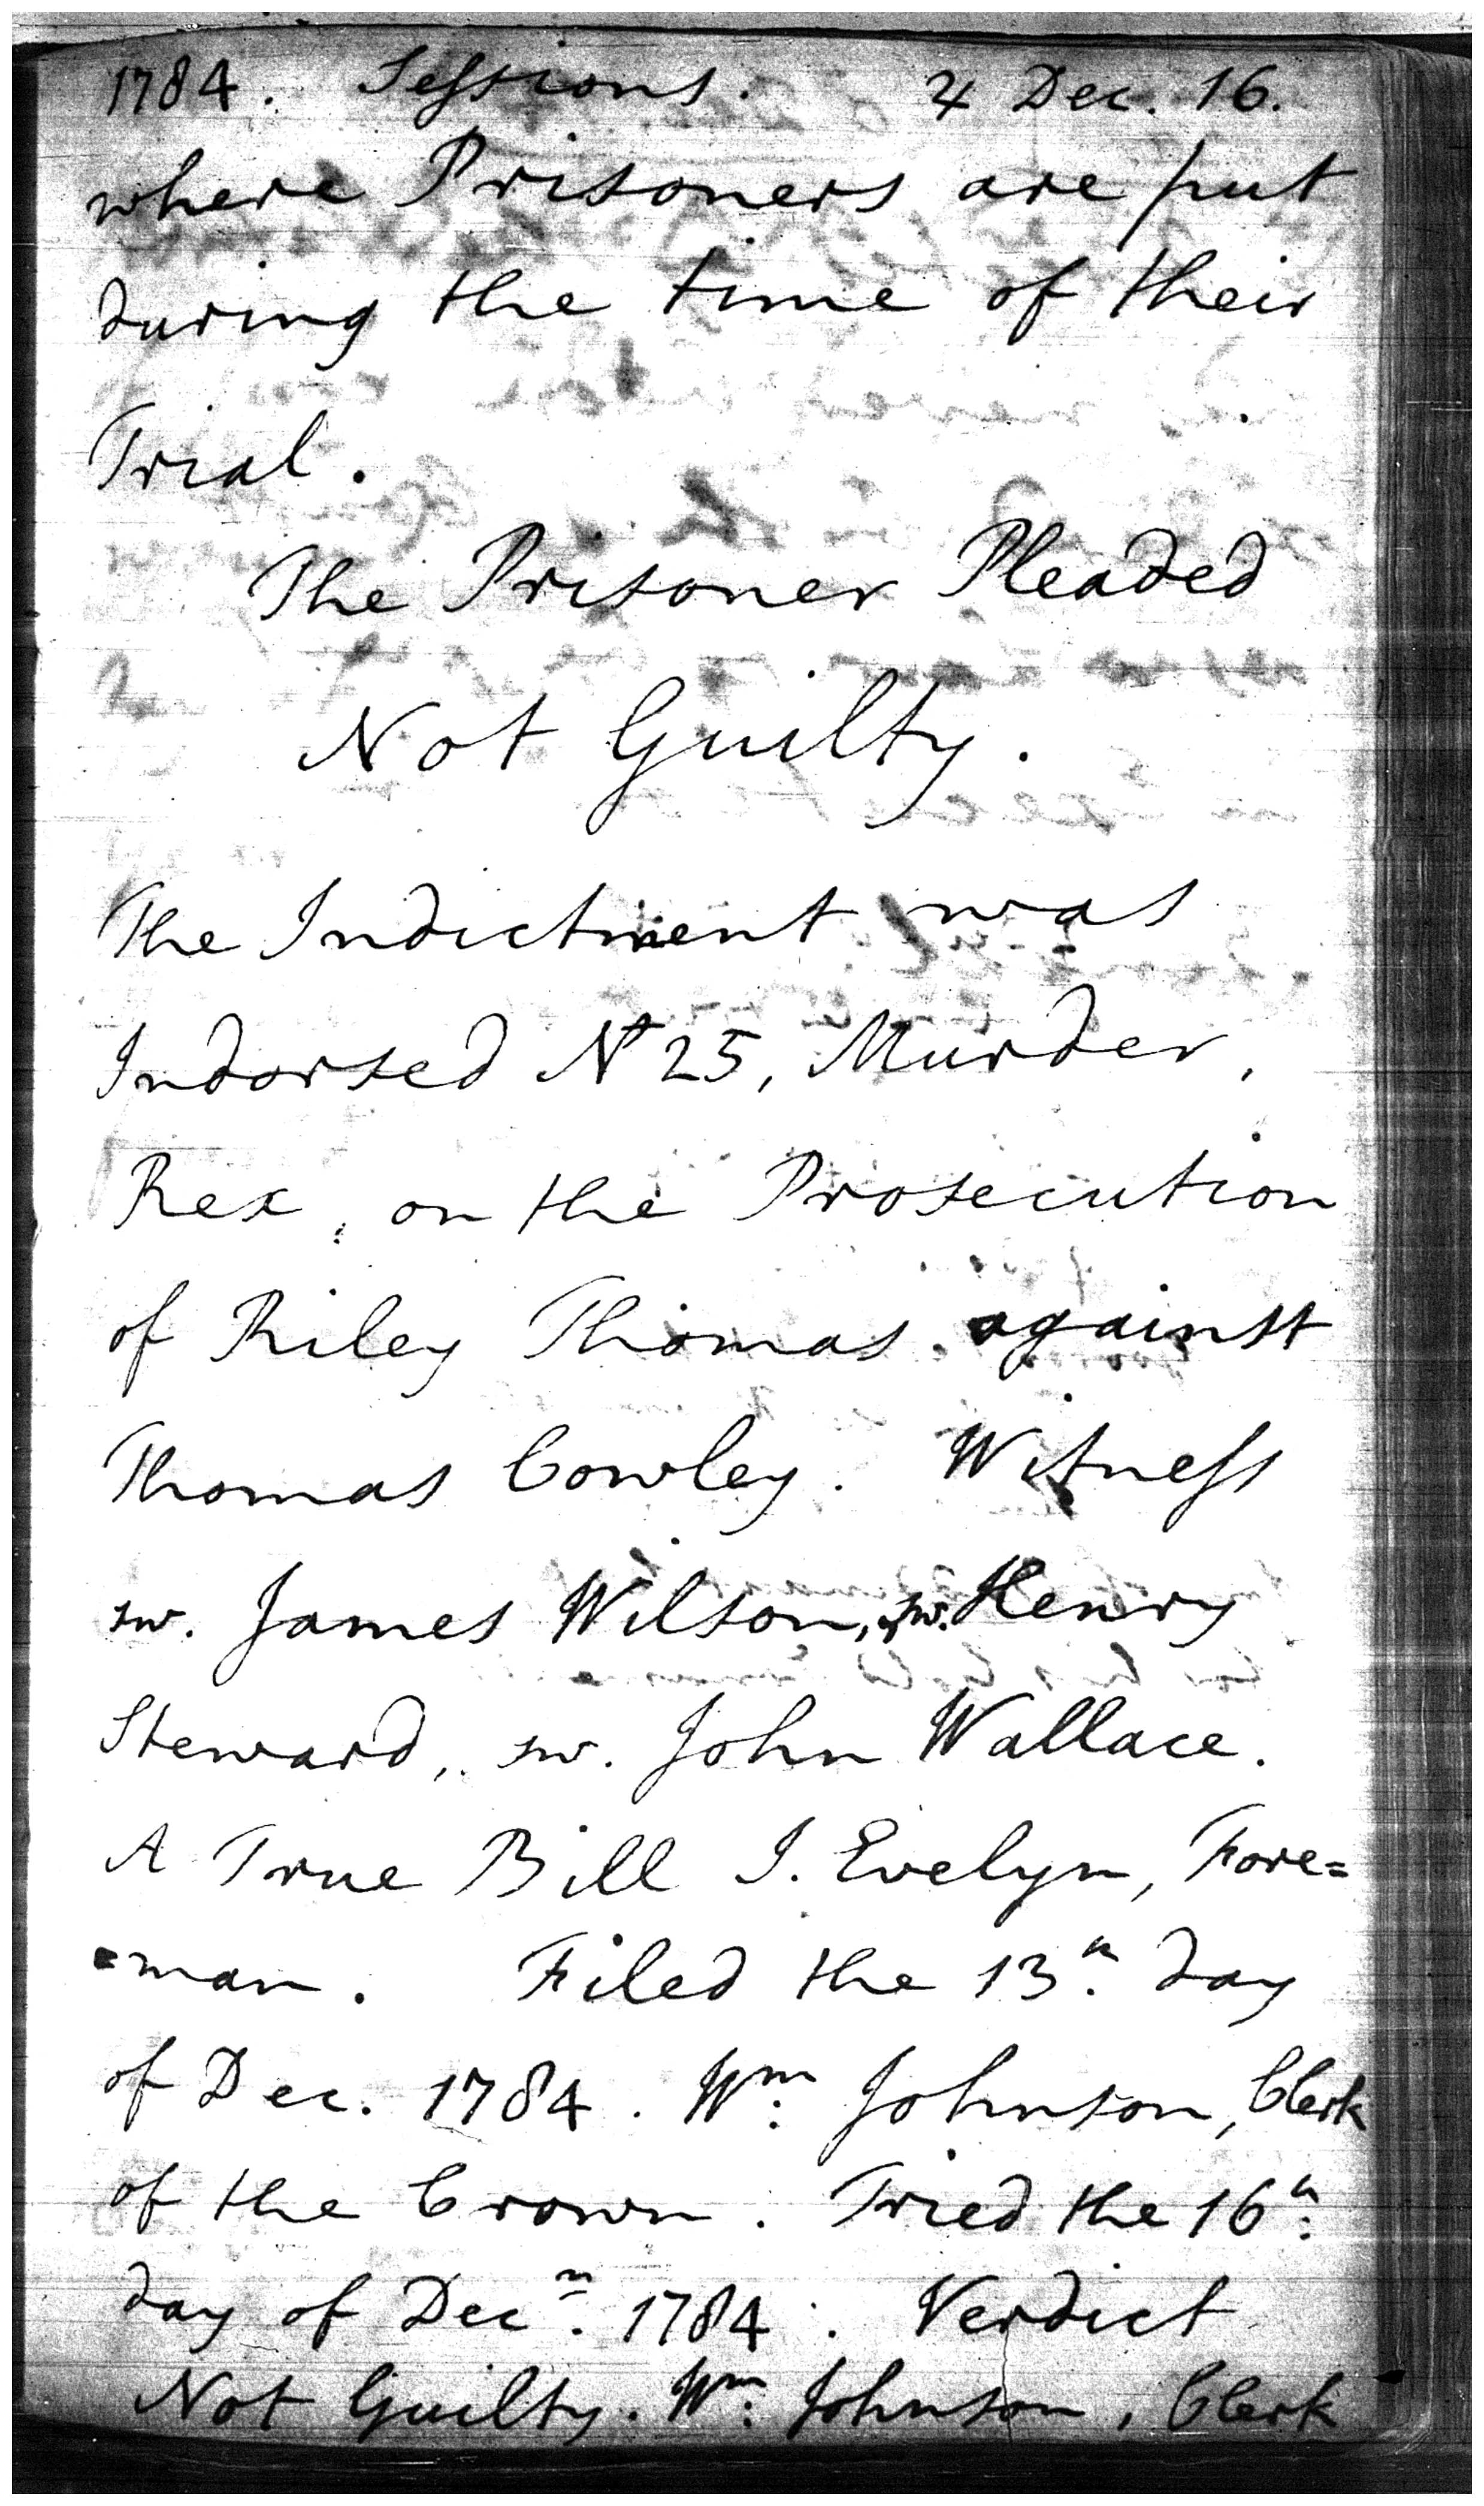 1784. Sessions. ♃ Dec. 16.
where Prisoners are put
during the time of their
Trial.
The Prisoner Pleaded
Not Guilty.
The Indictment was
Indorsed No 25, Murder,
Rex, on the Prosecution
of Riley Thomas against
Thomas Cowley. Witness
sw. James Wilson, sw. Henry
Steward, sw. John Wallace.
A True Bill J. Evelyn, Fore=
=man. Filed the 13th. day
of Dec. 1784. Wm: Johnson, Clerk
of the Crown. Tried the 16th:
day of Decr. 1784: Verdict
Not Guilty. Wm: Johnson, Clerk